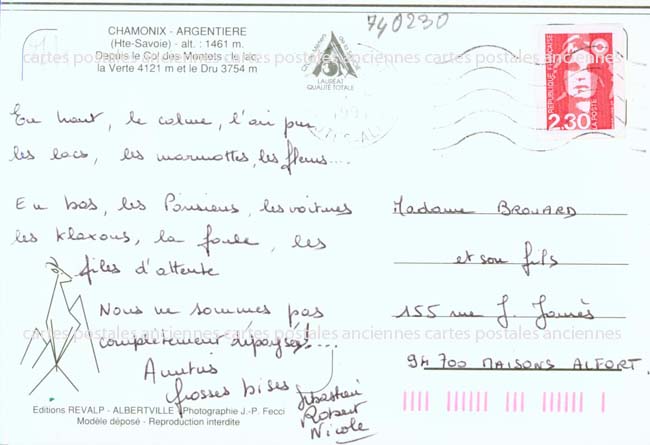 740230
CHAMONIX - ARGENTIERE
(Hte-Savoie) - alt. : 1461 m.
Depuis le Col des Montets : le lac,
la Verte 4121 m et le Dru 3754 m
LAURÉAT
QUALITÉ TOTALE
REPUBLIQUE FRANÇAISE
LA POSTE
2,30
cartes postales anciennes cartes postales anciennes cartes postales anciennes
En haut, le calme, l'air pur
les lacs, les marmottes, les fleurs....
En bas, les Parisiens, les voitures
les klaxons, la foule, les
files d'attente
Nous ne sommes pas
complètement dépaysés!...
Amitiés
Grosses bises
Sébastien
Robert
Nicole
Madame BROUARD
et son fils
155 rue J. Jaurès
94 700 MAISONS ALFORT.
cartes postales anciennes cartes postales anciennes cartes postales anciennes
Editions REVALP - ALBERTVILLE - Photographie J.-P. Fecci
Modèle déposé - Reproduction interdite